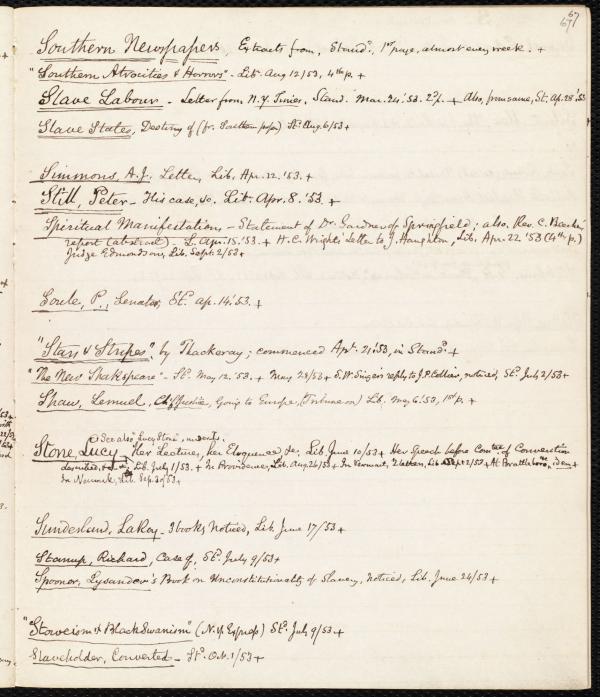 67
67
Southern Newspapers, Extracts from, Stand.d 1st page, almost every week. +
"Southern Atrocities & Horrors" - Lib. Aug 12/53, 4th p. +
Slave Labour - Letter from N.Y. Times, Stand. Mar. 24, '53. 2d p. + Also, from same, St. Ap. 28 '53
Slave States, Destiny of (fr. Southern paper) St.d Aug. 6/53 +
Simmons, A.J. Letter, Lib. Apr. 22. '53. +
Still, Peter - His case, &c. Lib. Apr. 8. '53. +
Spiritual Manifestations, - Statement of Dr. Gardner of Springfield; also, Rev. C. Beecher,
report (abstract) - L. Apr. 15. '53. + H.C. Wright's Letter to J. Haughton, Lib. Apr. 22 '53 (4th p.)
Judge Edmondson, Lib. Sept. 2/53 +
Soule, P., Senator, St.d Ap. 14, '53. +
"Stars & Stripes", by Thackeray; commenced Apr. 21, '53, in Stand.d +
"The New Shakspeare" - St.d May 12. '53. + May 28/53 + S.W. Singer's reply to J.P. Collier, noticed, St.d July 2/53 +
Shaw, Lemuel, Ch. Justice, Going to Europe, (Tribune on) Lib. May 6. '53, 1st p. +
See also "Lucy Stone",
Stone, Lucy - Her Lectures, her Eloquence, &c. Lib. June 10/53 + Her Speech before Com.tee of Convention
described, Lib. July 1/53. + In Providence, Lib. Aug. 26/53 + In Vermont, 2 letters, Lib. Sept 2/53 + At Brattleboro, idem +
In Newark, Lib. Sep. 30/53 +
Sunderland, LaRoy - 3 books, Noticed, Lib. June 17/53 +
Stanup, Richard, Case of, St.d July 9/53 +
Spooner, Lysander's Book on Unconstitutionality of Slavery, noticed, Lib. June 24/53 +
"Stoweism & BlackSwanism" (N.Y. Express) St.d July 9/53. +
Slaveholder, Converted - St.d Oct. 1/53 +